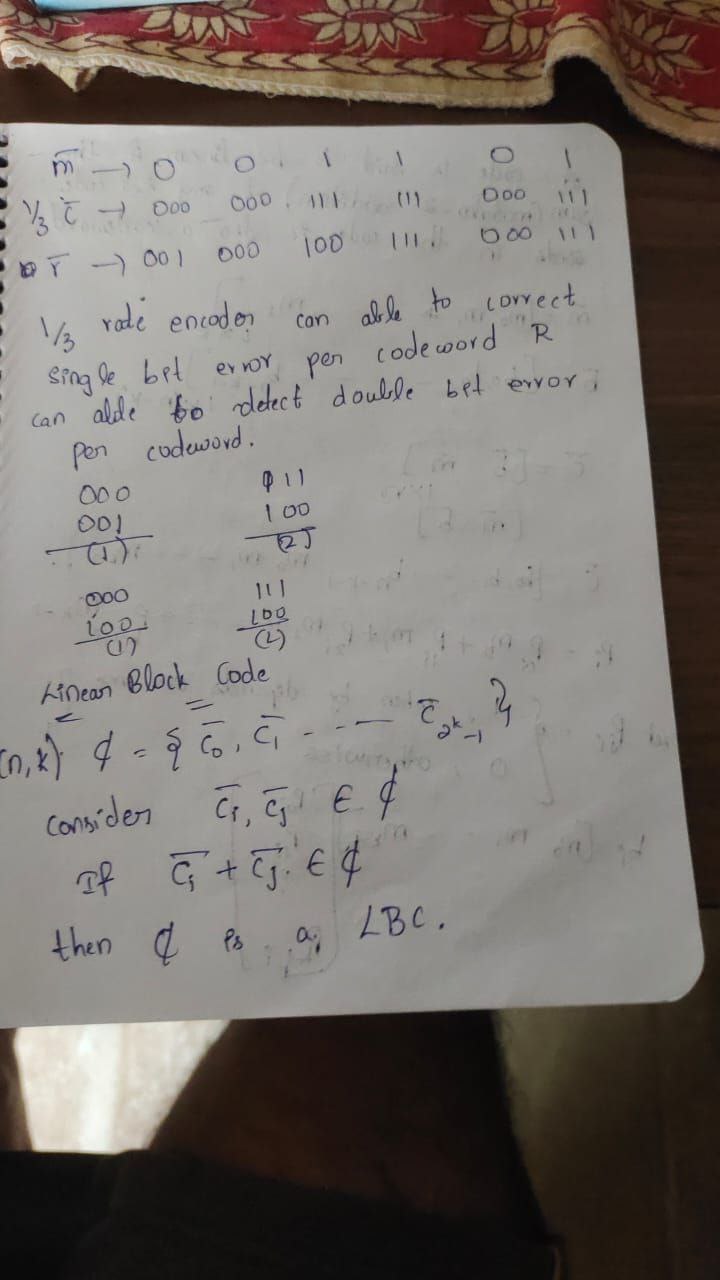 m̅ → 0 0 1 1 0 1
1/3 c̅ → 000 000 111 111 000 111
r̅ → 001 000 100 111. 000 111
1/3 rate encoder can able to correct
single bit error per codeword &
can able to detect double bit error
per codeword.
000 011
001 100
(1) (2)
000 111
100 100
(1) (2)
Linear Block Code
(n,k) ₵ = { c̅₀, c̅₁ - - - — c̅_2^k-1 }
consider c̅i, c̅j ∈ ₵
If c̅i + c̅j ∈ ₵
then ₵ is a LBC.